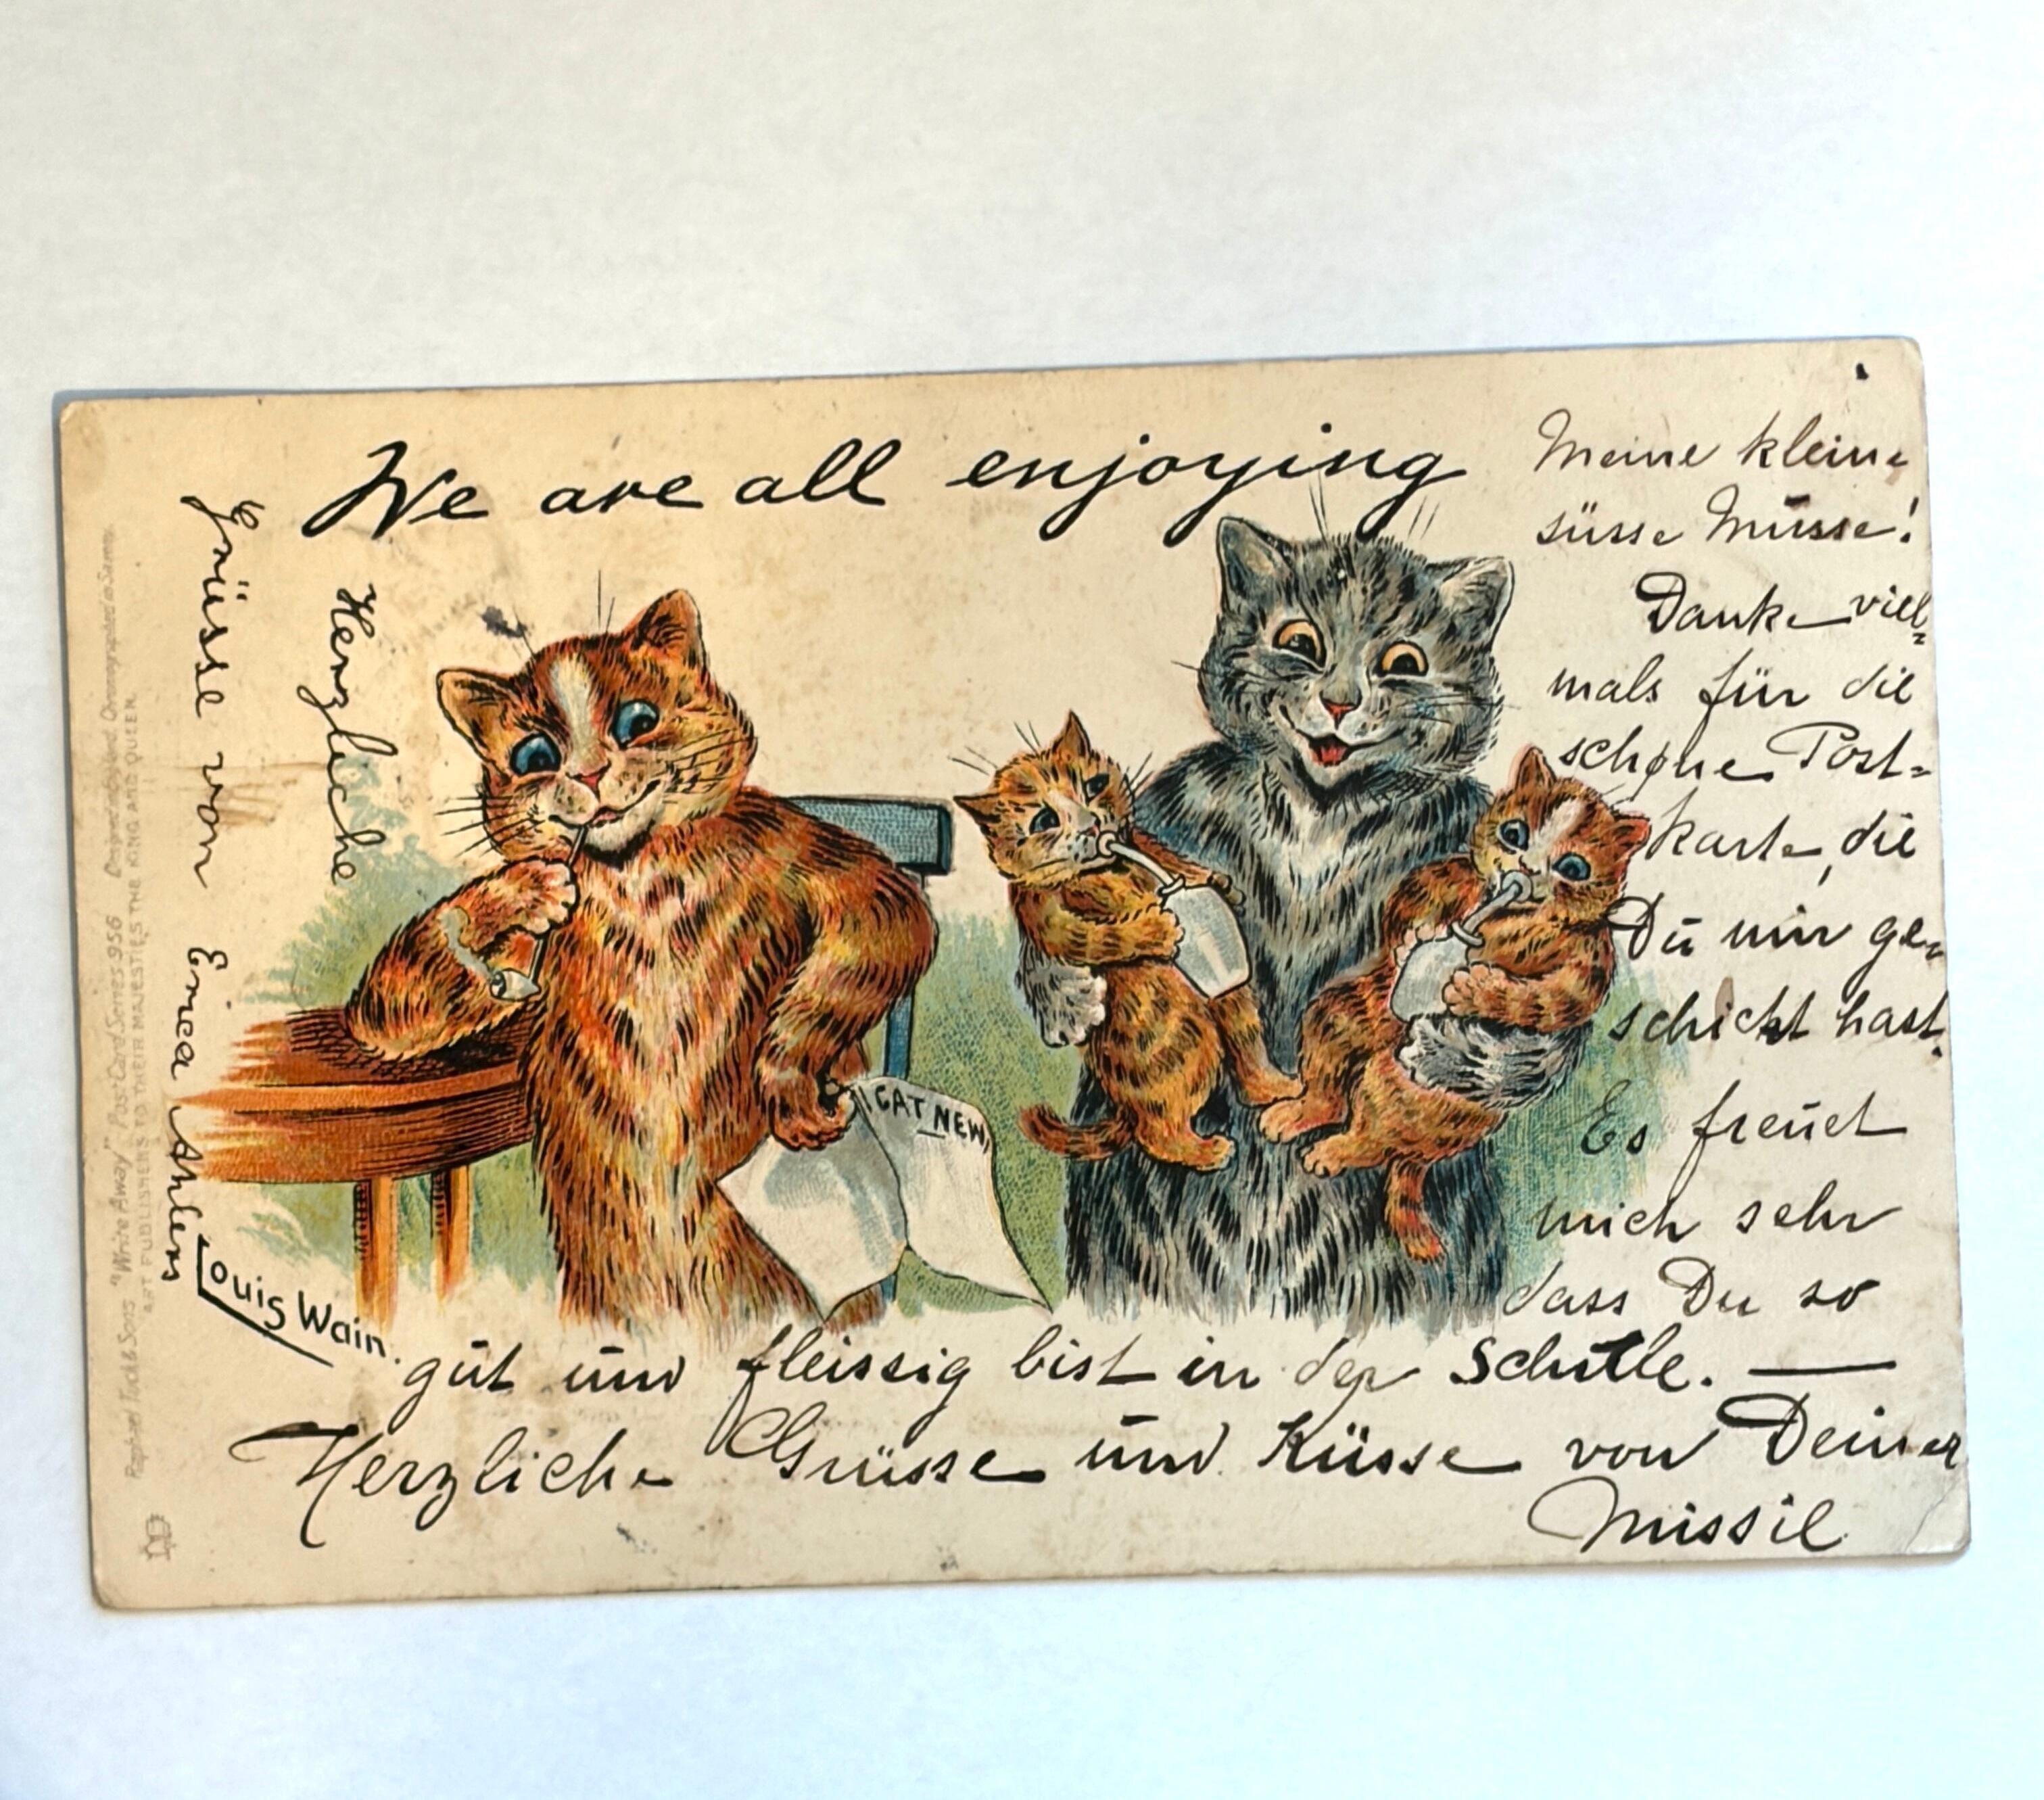 We are all enjoying
Meine kleine
süsse Müsse!
Danke viel=
mals für die
schöne Post=
karte, die
Du mir ge=
schickt hast.
Es freut
mich sehr
dass Du so
gut und fleissig bist in der Schule. —
Herzliche Grüsse und Küsse von Deiner
Missil
Herzliche
Grüsse von Erica Ahlers
CAT NEW
Louis Wain.
Raphael Tuck & Sons "Write Away" Post Card Series 956
ART PUBLISHERS TO THEIR MAJESTIES THE KING AND QUEEN.